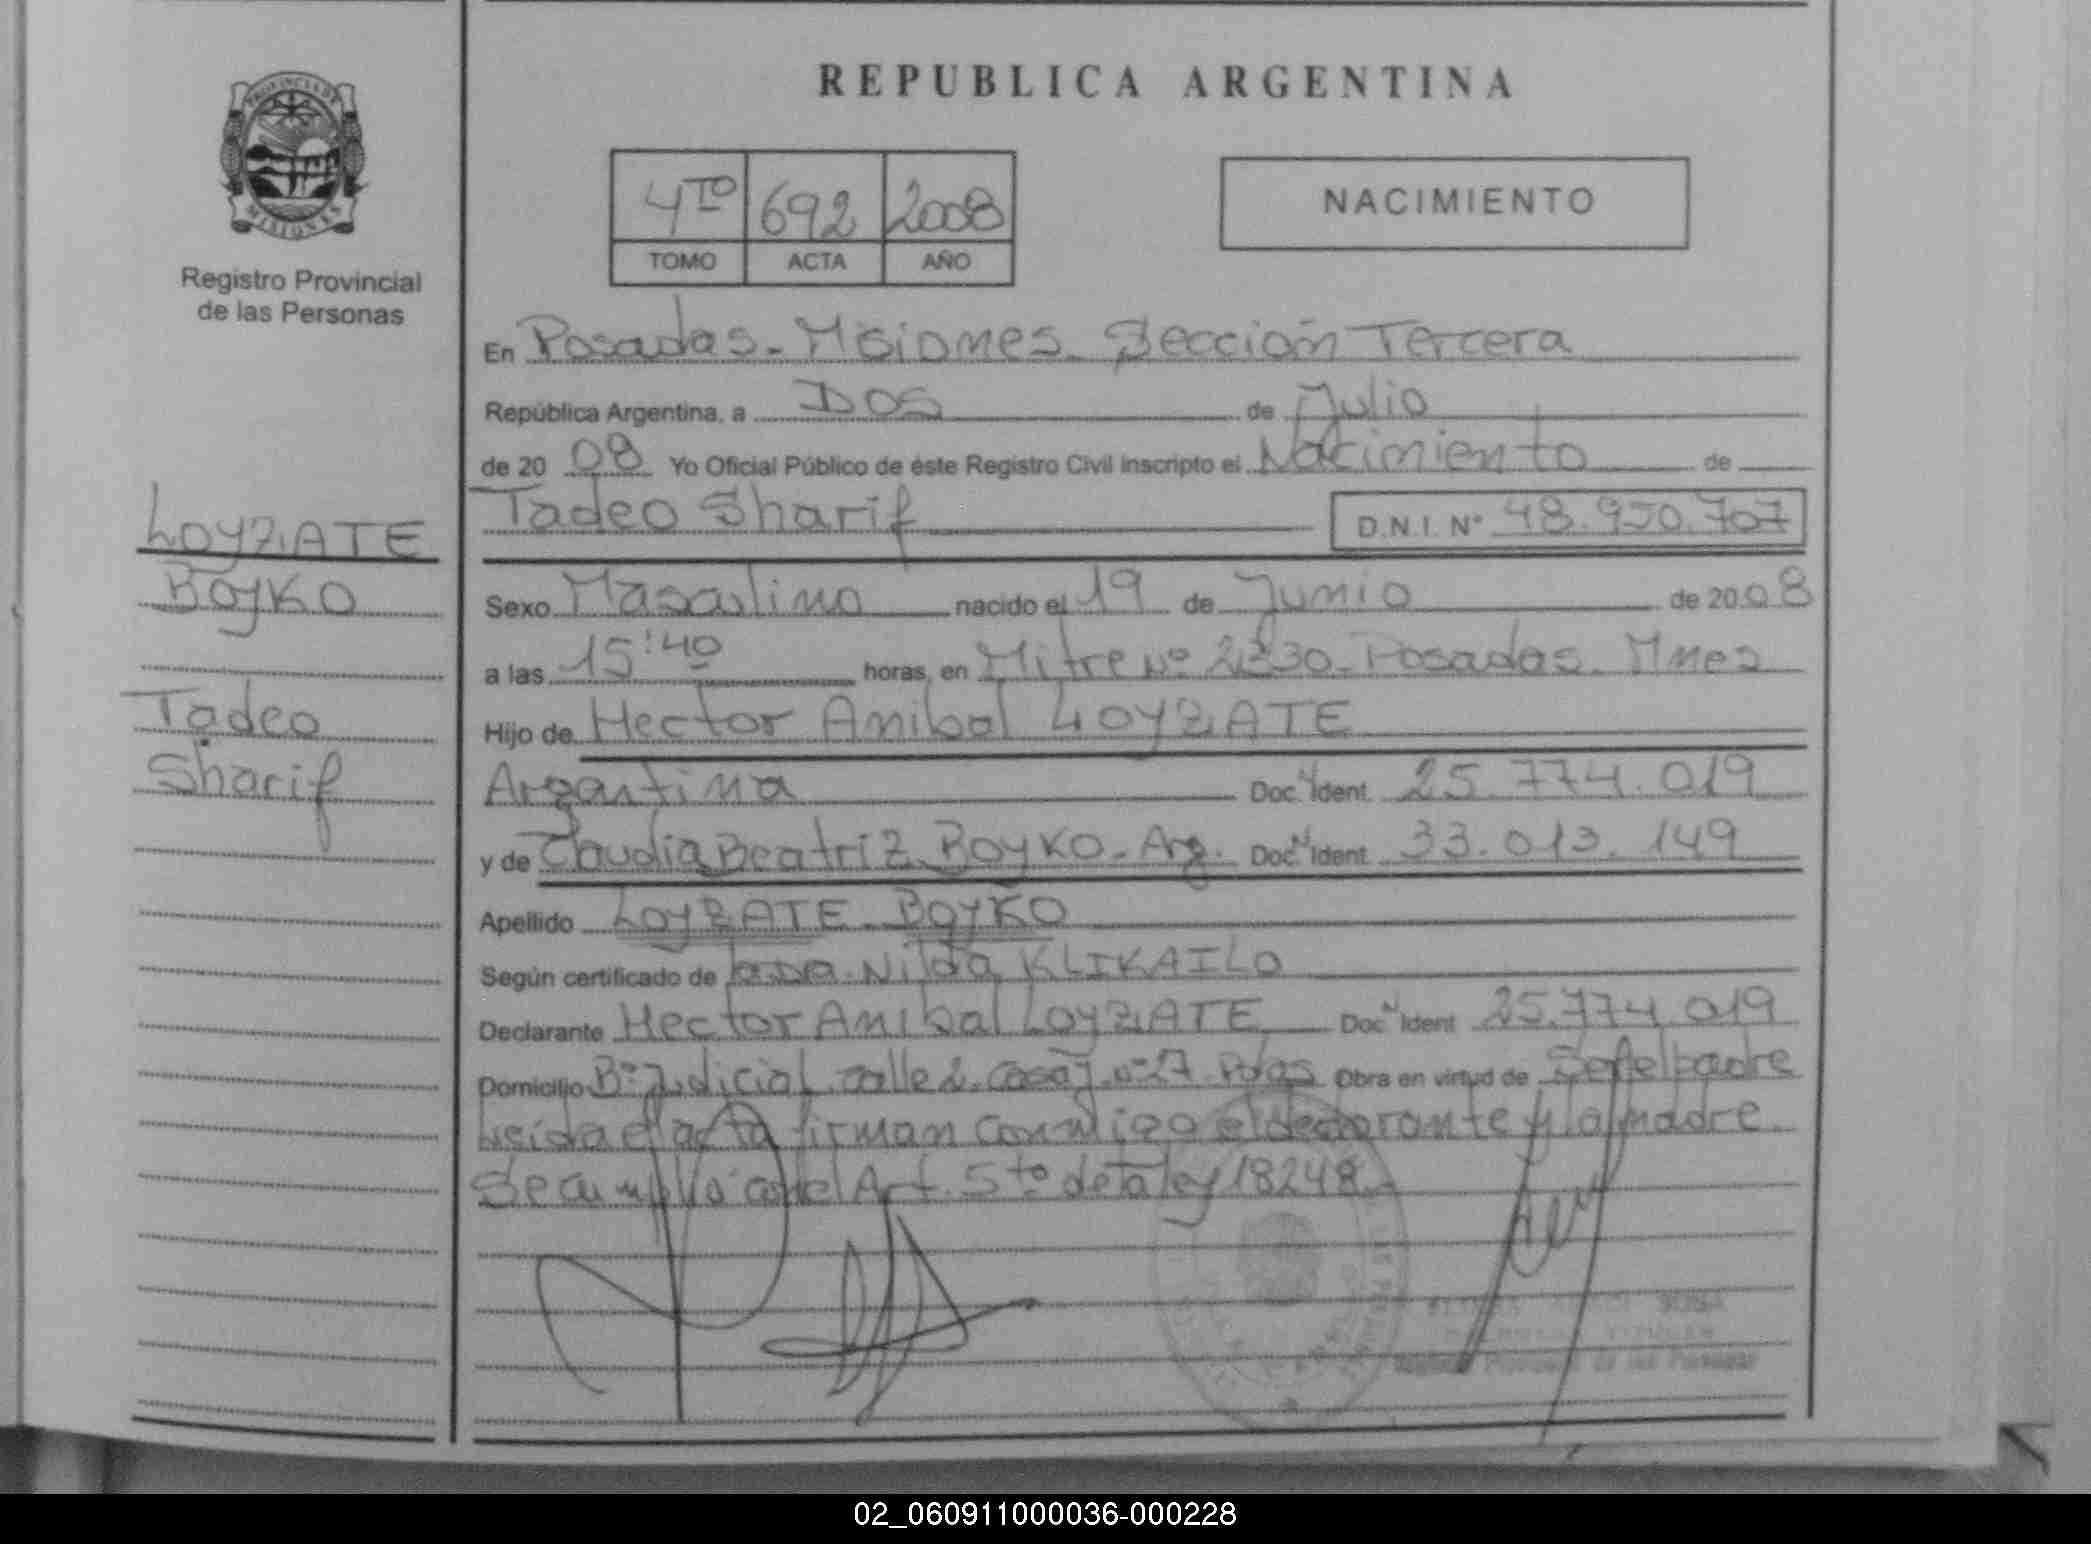 REPUBLICA ARGENTINA
PROVINCIA DE
MISIONES
Registro Provincial
de las Personas
4TO 692 2008
TOMO ACTA AÑO
NACIMIENTO
En Posadas - Misiones - Sección Tercera
República Argentina, a Dos de Julio
de 20 08 Yo Oficial Público de éste Registro Civil inscripto el Nacimiento de
Tadeo Sharif D.N.I. N° 48.950.707
LOYZATE
BOYKO
Tadeo
Sharif
Sexo Masculino nacido el 19 de Junio de 20 08
a las 15:40 horas, en Mitre Nº 2330 - Posadas - Mnes
Hijo de Hector Anibal LOYZATE
Argentina Doc. Ident. 25.774.019
y de Claudia Beatriz BOYKO - Arg. Doc. Ident. 33.013.149
Apellido LOYZATE - BOYKO
Según certificado de Nilda KLIKAILO
Declarante Hector Anibal LOYZATE Doc. Ident. 25.774.019
Domicilio Bº Judicial calle 2 casa nº 27 Pdas Obra en virtud de Ser el padre
Leida el acta firman conmigo el declarante y la madre.
Se cumplió con el Art. 5to de la ley 18248.-
SOSA
Registro Provincial de las Personas
02_060911000036-000228